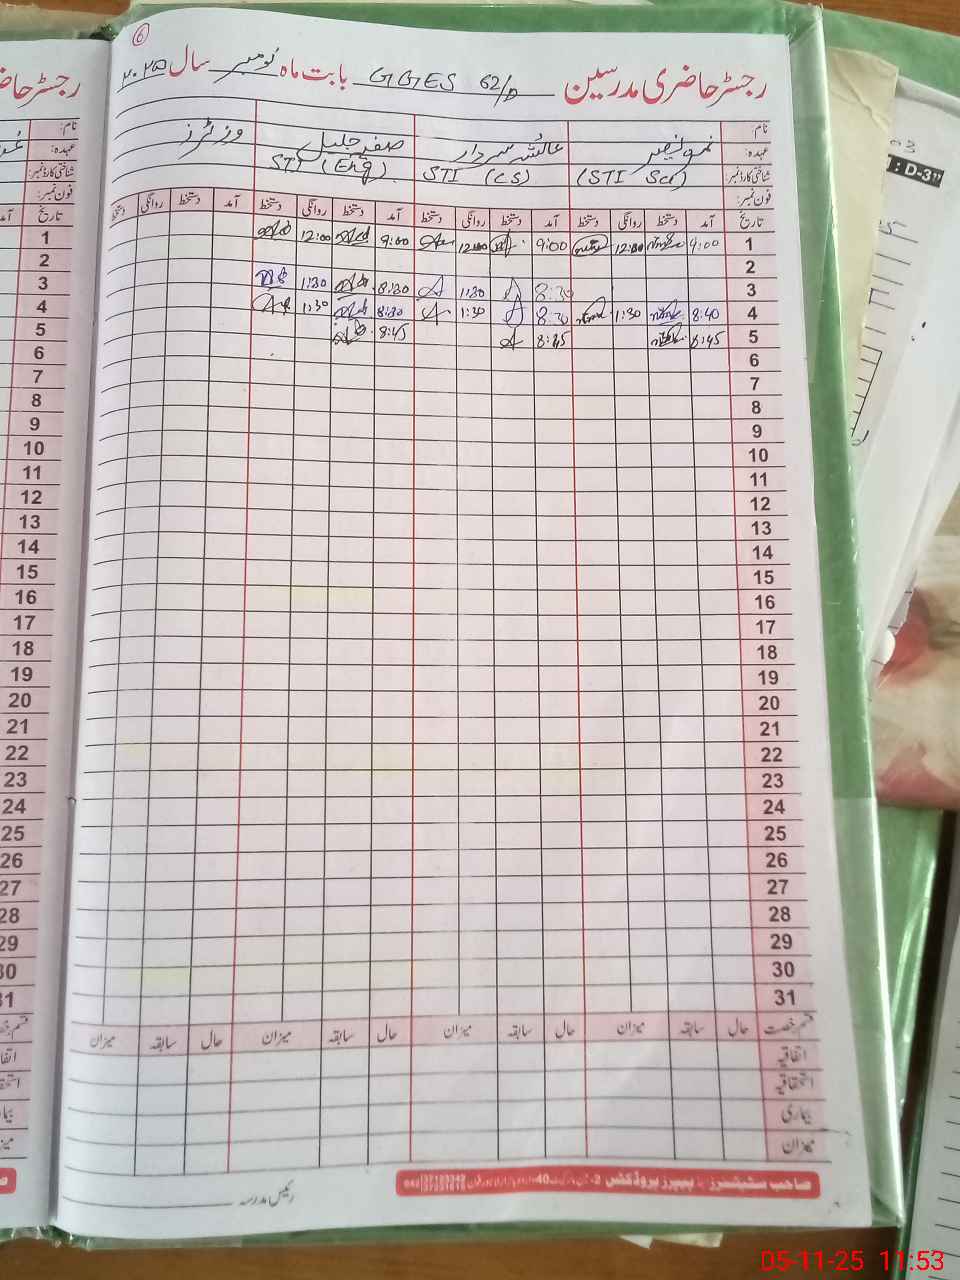 6
رجسٹر حاضری مدرسین GGES 62/D بابت ماہ نومبر سال ۲۰۲۵
نام:
عہدہ: نمرہ نصیر عائشہ سردار صفیہ جلیل وزیٹرز
شناختی کارڈ نمبر: (STI Sci) STI (CS) STI (Eng)
فون نمبر:
تاریخ آمد دستخط روانگی دستخط آمد دستخط روانگی دستخط آمد دستخط روانگی دستخط آمد دستخط روانگی دستخط
1 9:00 12:00 9:00 12:00 9:00 12:00
2
3 8:30 1:30 8:30 1:30
4 8:40 1:30 8:30 1:30 8:30 1:30
5 8:45 8:45 8:45
6
7
8
9
10
11
12
13
14
15
16
17
18
19
20
21
22
23
24
25
26
27
28
29
30
31
قسم رخصت حال سابقہ میزان حال سابقہ میزان حال سابقہ میزان حال سابقہ میزان
اتفاقیہ
استحقاقیہ
بیماری
میزان
صاحب سٹیشنرز پیپرز پروڈکٹس
رئیس مدرسہ
: D-3"
05-11-25 11:53